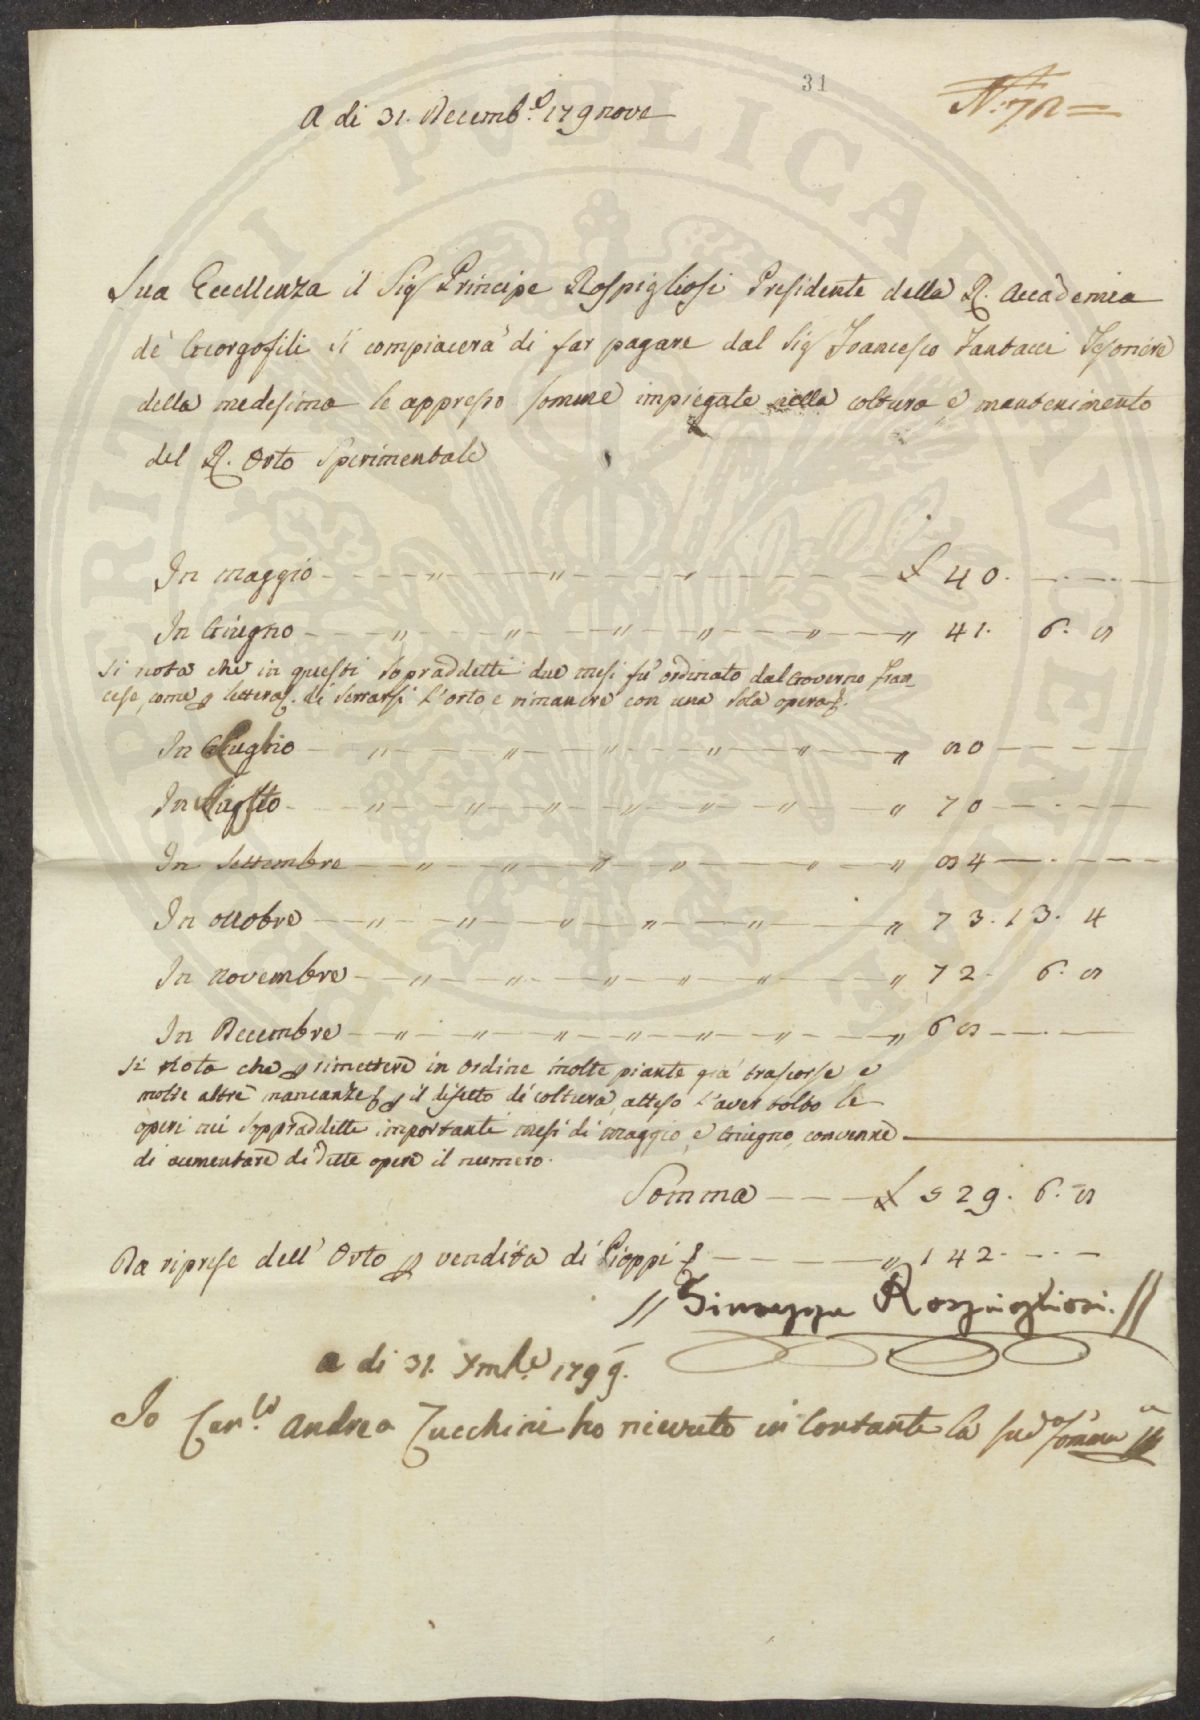 31
N.° 78 =
A di 31. Decemb.e 179nove
Sua Eccellenza il Sig Principe Rospigliosi Presidente della R. Accademia
de' Georgofili si compiacerà di far pagare dal Sig Francesco Tantacci Tesoriere
della medesima le appresso somme impiegate nella coltura e mantenimento
del R. Orto Sperimentale
In maggio £ 40. — . —
In Giugno " 41. 6. 8
Si nota che in questi sopraddetti due mesi fu ordinato dal Governo Fran=
cese, come p lettera. di serrarsi l'orto, e rimanere con una sola opera.
In Luglio " 80 — . —
In Agosto " 70 — . —
In Settembre " 84 — . —
In ottobre " 73. 13. 4
In novembre " 72. 6. 8
In Decembre " 68 — . —
Si Nota che p rimettere in ordine molte piante già trascorse e
molte altre mancanze p il difetto di coltura, atteso l'aver tolto le
operi nei soppraddetti importanti mesi di maggio, e Giugno, convenne
di aumentare di dette opere il numero.
Somma £ 529. 6. 8
Da riprese dell' Orto p vendita di Pioppi " 142. — . —
// Giuseppe Rospigliosi. //
a di 31. Xmb.e 1799.
Io Can.co Andrea Zucchini ho ricevuto in Contante la sud.a somma
PROSPERITATI PVBLICAE AVGENDAE